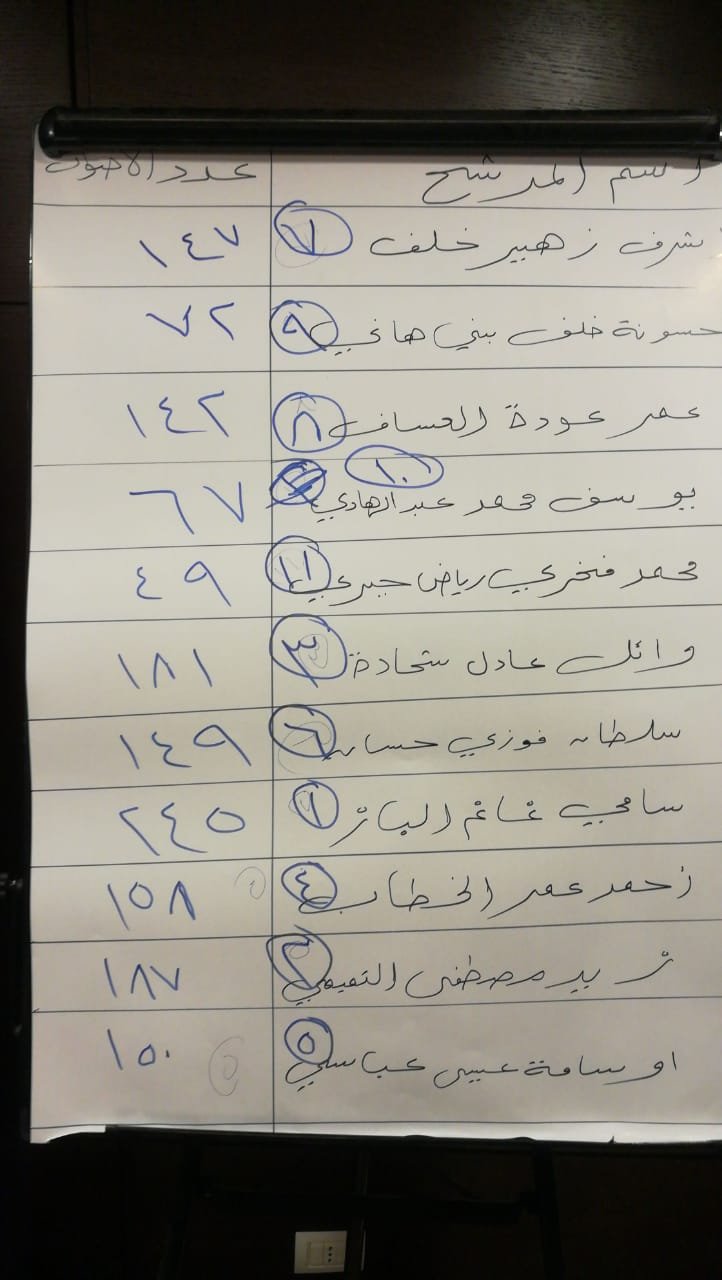 اسم المرشح عدد الأصوات
أشرف زهير خلف ٧ ١٤٧
حسونة خلف بني هاني ٩ ٧٢
عمر عودة العساف ٨ ١٤٢
يوسف محمد عبد الهادي ١٠ ٦٧
محمد فخري رياض جبري ١١ ٤٩
وائل عادل شحادة ٣ ١٨١
سلطان فوزي حسان ٦ ١٤٩
سامي غانم الباز ١ ٢٤٥
أحمد عمر الخطاب ٤ ١٥٨
زيد مصطفى التميمي ٢ ١٨٧
اوسامة عيسى عباسي ٥ ١٥٠